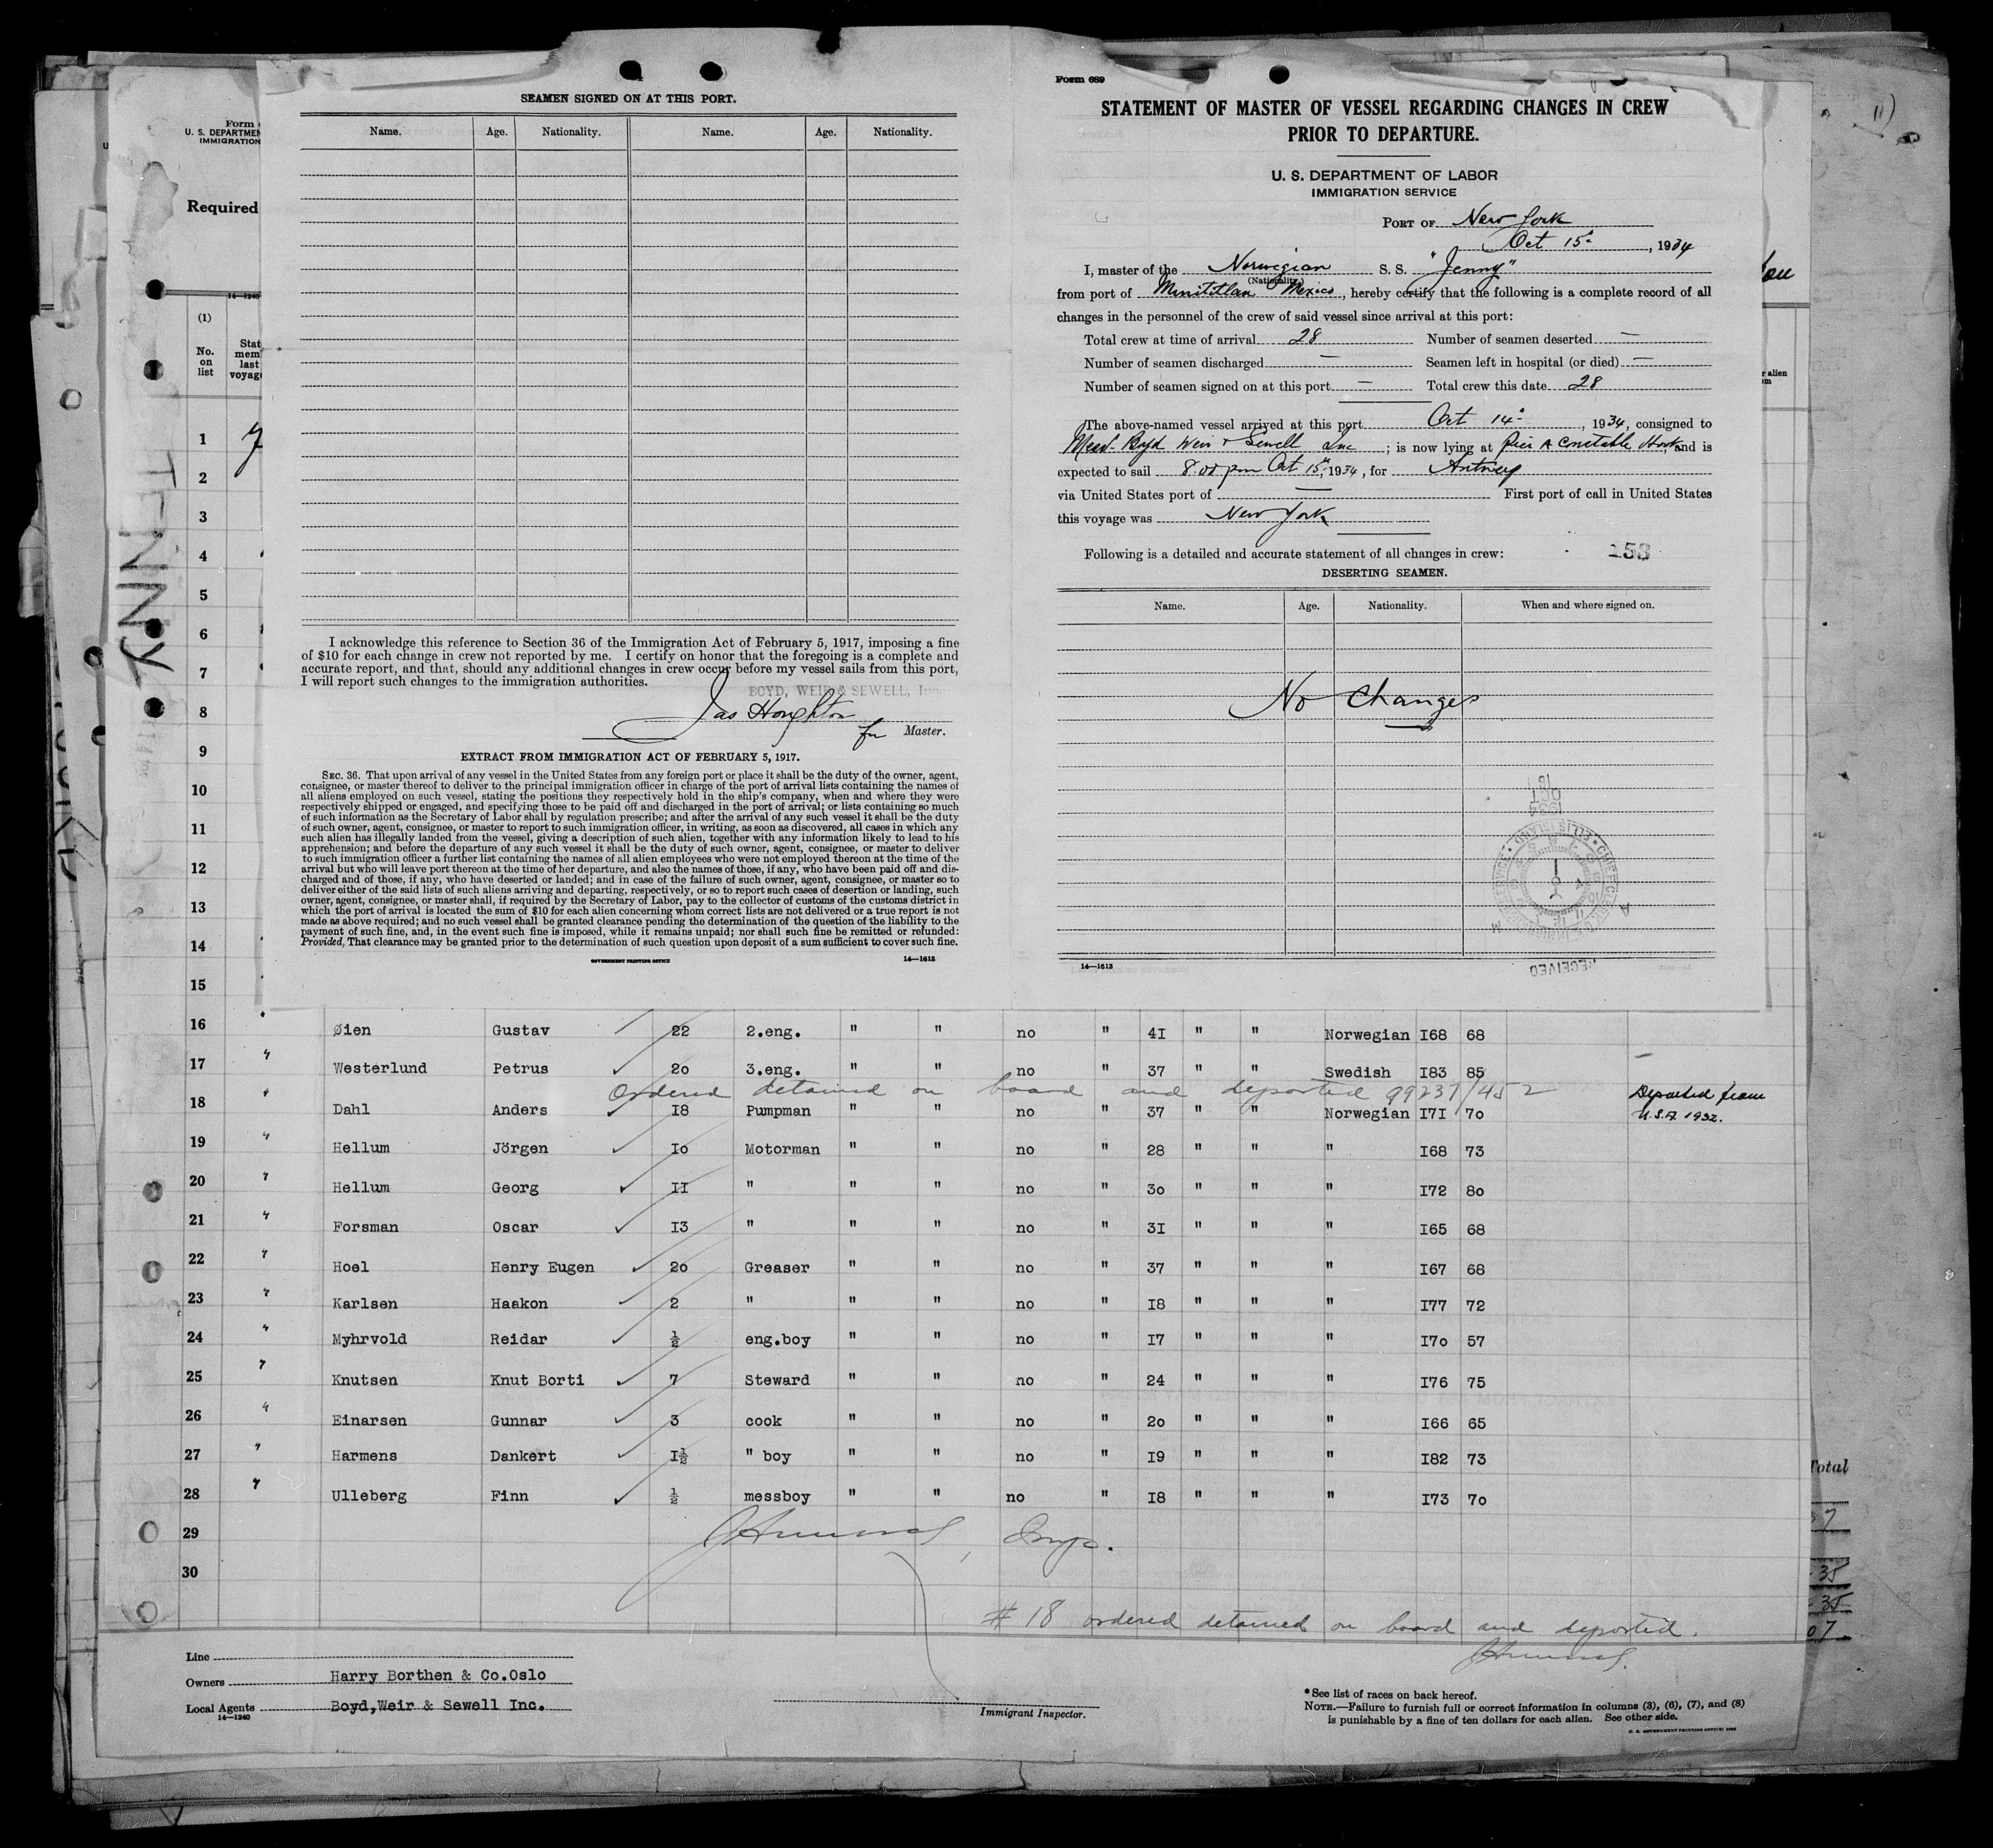 SEAMEN SIGNED ON AT THIS PORT.
Name. Age. Nationality. Name. Age. Nationality.
I acknowledge this reference to Section 36 of the Immigration Act of February 5, 1917, imposing a fine
of $10 for each change in crew not reported by me. I certify on honor that the foregoing is a complete and
accurate report, and that, should any additional changes in crew occur before my vessel sails from this port,
I will report such changes to the immigration authorities.
BOYD, WEIR & SEWELL, Inc.
Jas Houghton
for Master.
EXTRACT FROM IMMIGRATION ACT OF FEBRUARY 5, 1917.
SEC. 36. That upon arrival of any vessel in the United States from any foreign port or place it shall be the duty of the owner, agent,
consignee, or master thereof to deliver to the principal immigration officer in charge of the port of arrival lists containing the names of
all aliens employed on such vessel, stating the positions they respectively hold in the ship's company, when and where they were
respectively shipped or engaged, and specifying those to be paid off and discharged in the port of arrival; or lists containing so much
of such information as the Secretary of Labor shall by regulation prescribe; and after the arrival of any such vessel it shall be the duty
of such owner, agent, consignee, or master to report to such immigration officer, in writing, as soon as discovered, all cases in which any
such alien has illegally landed from the vessel, giving a description of such alien, together with any information likely to lead to his
apprehension; and before the departure of any such vessel it shall be the duty of such owner, agent, consignee, or master to deliver
to such immigration officer a further list containing the names of all alien employees who were not employed thereon at the time of the
arrival but who will leave port thereon at the time of her departure, and also the names of those, if any, who have been paid off and dis-
charged and of those, if any, who have deserted or landed; and in case of the failure of such owner, agent, consignee, or master so to
deliver either of the said lists of such aliens arriving and departing, respectively, or so to report such cases of desertion or landing, such
owner, agent, consignee, or master shall, if required by the Secretary of Labor, pay to the collector of customs of the customs district in
which the port of arrival is located the sum of $10 for each alien concerning whom correct lists are not delivered or a true report is not
made as above required; and no such vessel shall be granted clearance pending the determination of the question of the liability to the
payment of such fine, and, in the event such fine is imposed, while it remains unpaid; nor shall such fine be remitted or refunded:
Provided, That clearance may be granted prior to the determination of such question upon deposit of a sum sufficient to cover such fine.
GOVERNMENT PRINTING OFFICE 14—1613
Form 689
STATEMENT OF MASTER OF VESSEL REGARDING CHANGES IN CREW
PRIOR TO DEPARTURE.
U. S. DEPARTMENT OF LABOR
IMMIGRATION SERVICE
PORT OF New York
Oct 15, 1934
I, master of the Norwegian S. S. "Jenny"
(Nationality.)
from port of Minititlan Mexico, hereby certify that the following is a complete record of all
changes in the personnel of the crew of said vessel since arrival at this port:
Total crew at time of arrival 28 Number of seamen deserted —
Number of seamen discharged — Seamen left in hospital (or died) —
Number of seamen signed on at this port — Total crew this date 28
The above-named vessel arrived at this port Oct 14, 1934, consigned to
Mess. Boyd Weir & Sewell Inc; is now lying at Pier A Constable Hook, and is
expected to sail 8.00 pm Oct 15, 1934, for Antwerp
via United States port of — First port of call in United States
this voyage was New York
Following is a detailed and accurate statement of all changes in crew:
153
DESERTING SEAMEN.
Name. Age. Nationality. When and where signed on.
No Changes
RECEIVED
ELLIS ISLAND
OCT
1934
14—1613
Form
U. S. DEPARTMEN
IMMIGRATION
Required
14—1240
(1)
No.
on
list
Stat
mem
last
voyage
r alien
JENNY
1
2
3
4
5
6
7
8
9
10
11
12
13
14
15
16 " Øien Gustav 22 2.eng. " " no " 4I " " Norwegian I68 68
17 " Westerlund Petrus 20 3.eng. " " no " 37 " " Swedish I83 85
Ordered detained on board and deported 99237/452
18 " Dahl Anders I8 Pumpman " " no " 37 " " Norwegian I7I 70 Deported from
U.S.A. 1932.
19 " Hellum Jörgen Io Motorman " " no " 28 " " " I68 73
20 " Hellum Georg II " " " no " 3o " " " I72 80
21 " Forsman Oscar I3 " " " no " 3I " " " I65 68
22 " Hoel Henry Eugen 20 Greaser " " no " 37 " " " I67 68
23 " Karlsen Haakon 2 " " " no " I8 " " " I77 72
24 " Myhrvold Reidar ½ eng.boy " " no " I7 " " " I7o 57
25 " Knutsen Knut Borti 7 Steward " " no " 24 " " " I76 75
26 " Einarsen Gunnar 3 cook " " no " 2o " " " I66 65
27 " Harmens Dankert I½ " boy " " no " I9 " " " I82 73
28 " Ulleberg Finn ½ messboy " " no " I8 " " " I73 7o
29
30
Insp.
#18 ordered detained on board and deported.
Line
Owners Harry Borthen & Co.Oslo
Local Agents Boyd,Weir & Sewell Inc.
14—1240
Immigrant Inspector.
*See list of races on back hereof.
NOTE.—Failure to furnish full or correct information in columns (3), (6), (7), and (8)
is punishable by a fine of ten dollars for each alien. See other side.
Total